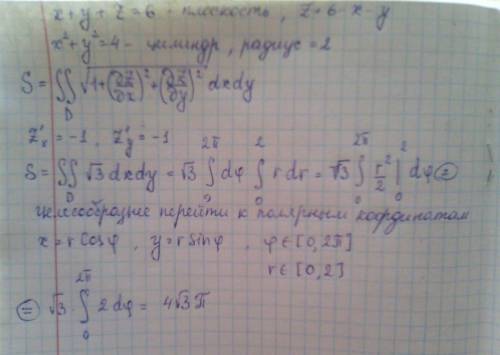 x+y+z=6 - плоскость, z=6-x-y
x²+y²=4 - цилиндр, радиус=2
S = ∬_D √(1+(∂z/∂x)²+(∂z/∂y)²) dxdy
z'ₓ = -1, z'ᵧ = -1
S = ∬_D √3 dxdy = √3 ∫₀^2π dφ ∫₀² r dr = √3 ∫₀^2π r²/2 |₀² dφ ⊜
целесообразнее перейти к полярным координатам
x = r cosφ, y = r sinφ, φ∈[0,2π]
r∈[0,2]
⊜ √3 · ∫₀^2π 2dφ = 4√3 π